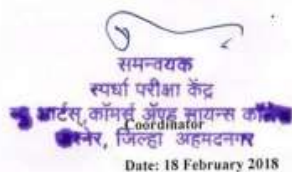 समन्वयक
स्पर्धा परीक्षा केंद्र
आर्टस् कॉमर्स अॅण्ड सायन्स कॉलेज
Coordinator
पारनेर, जिल्हा अहमदनगर
Date: 18 February 2018